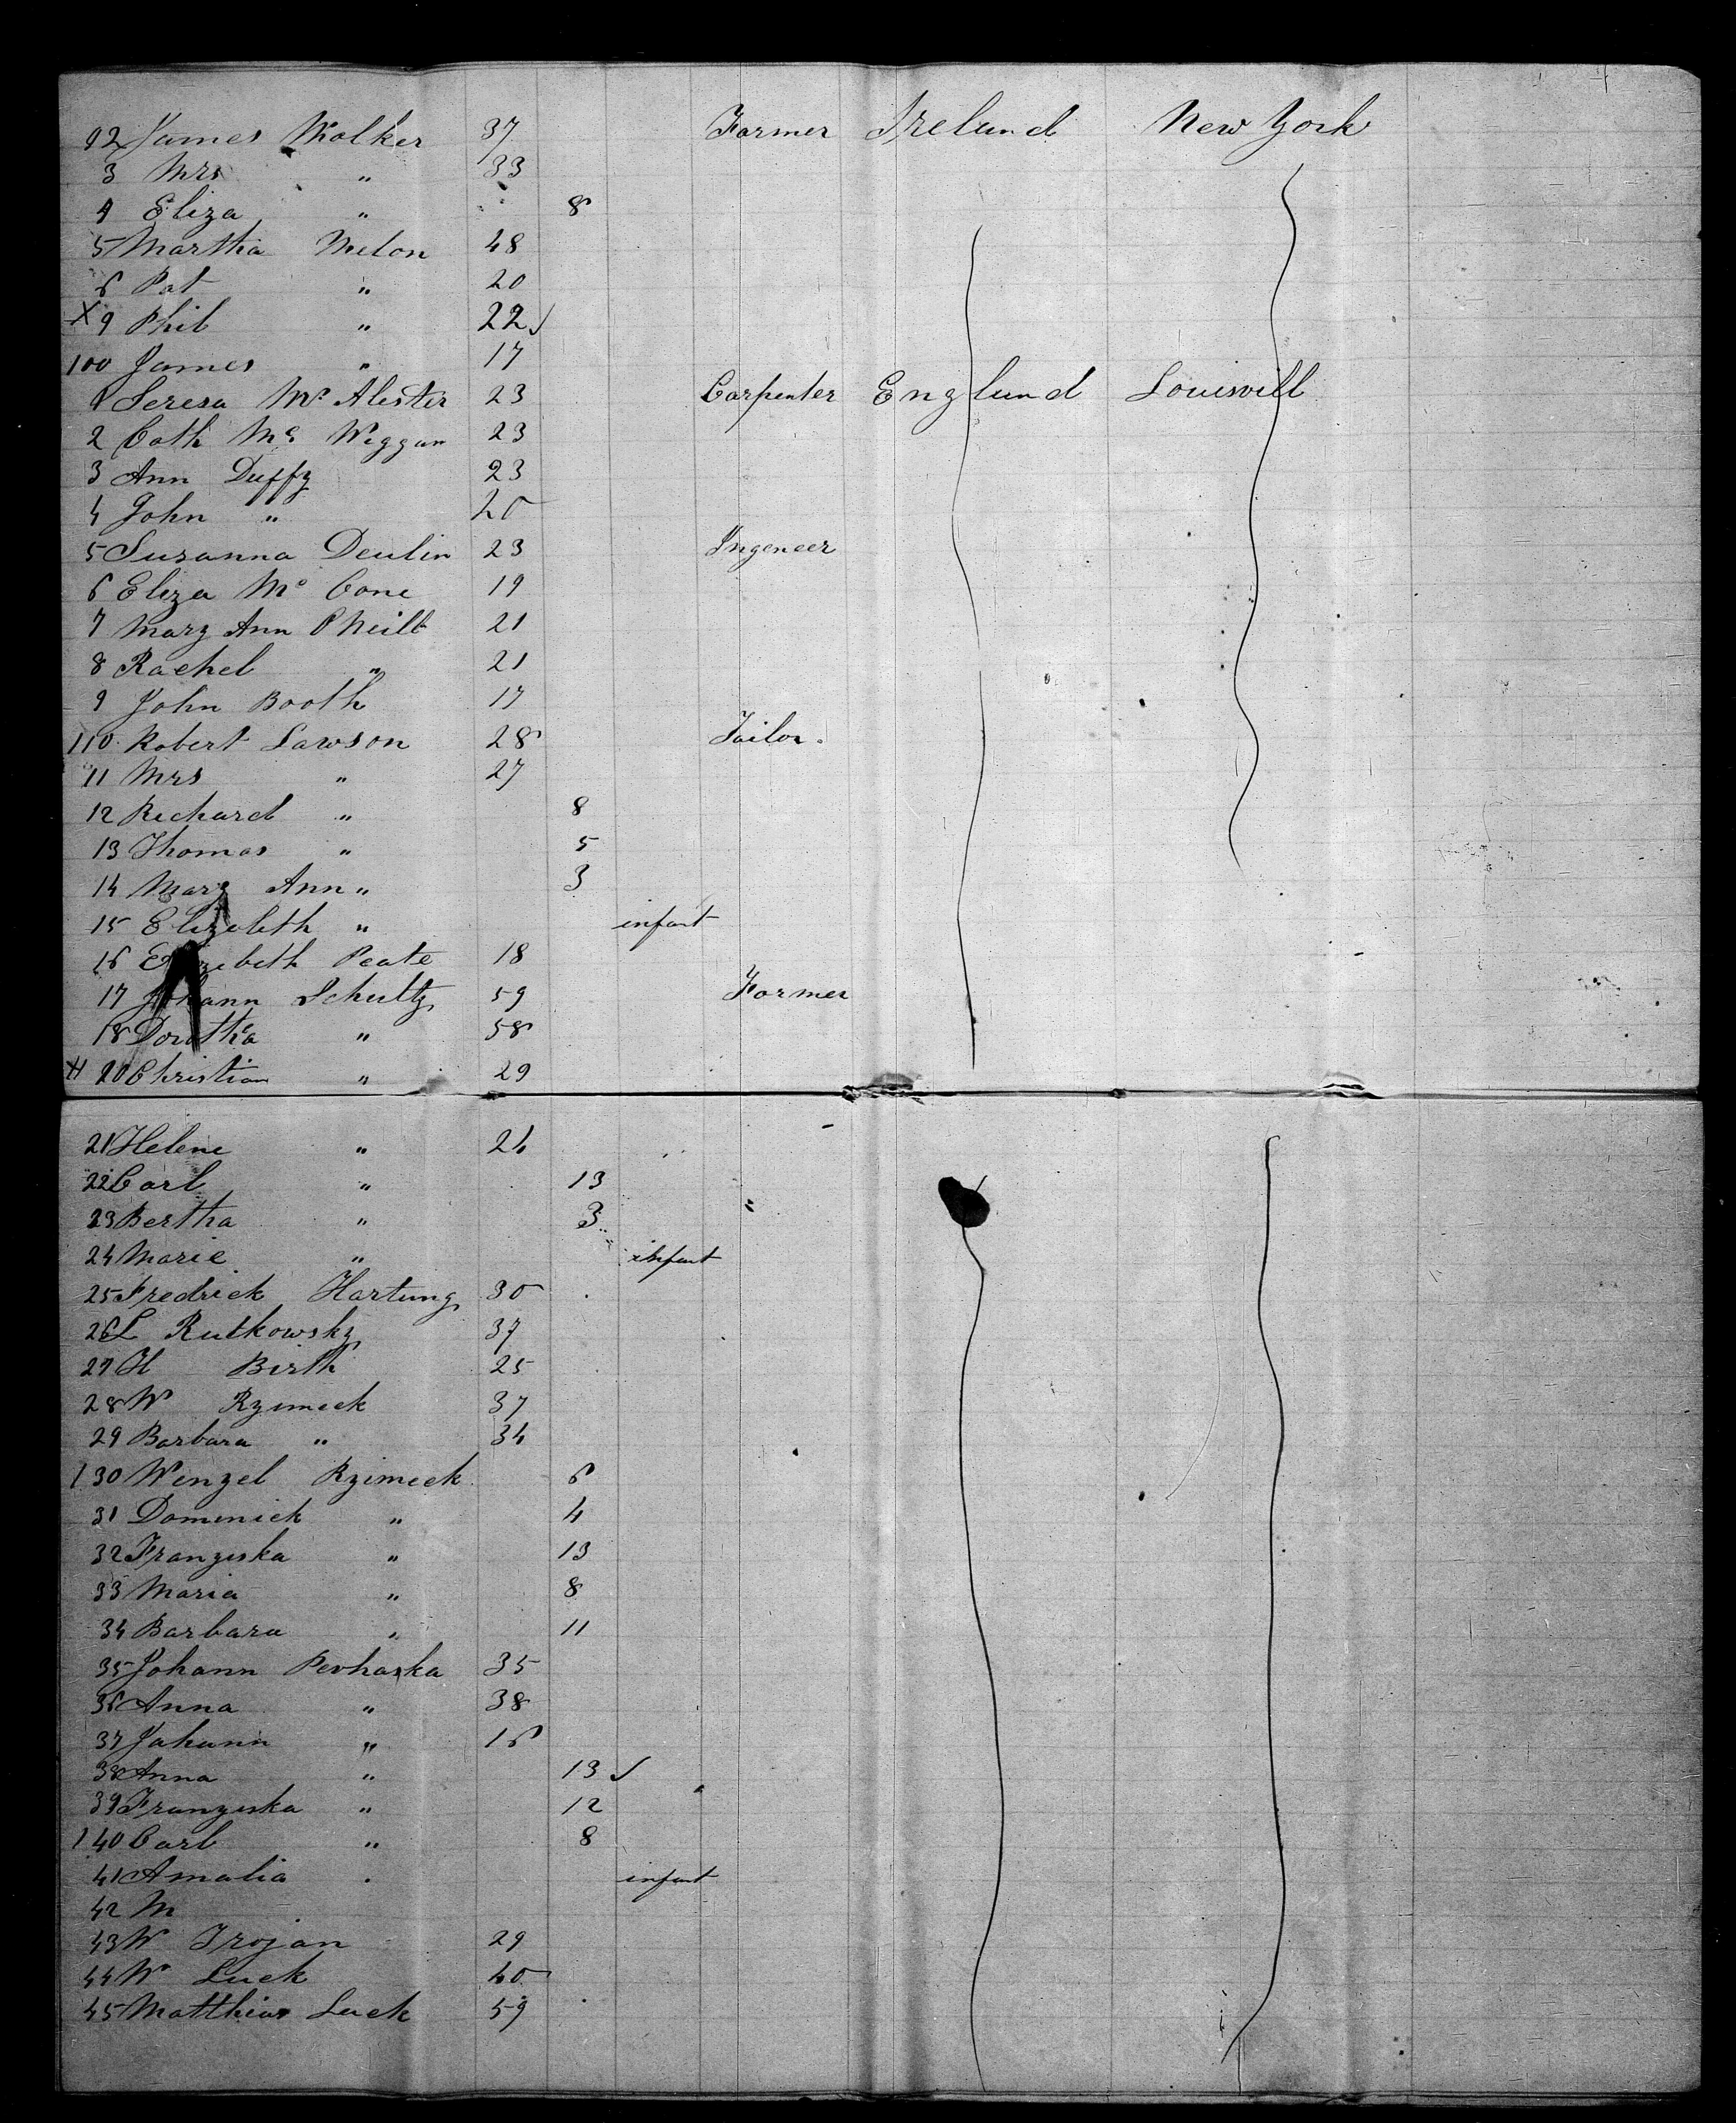 92 James Wolker 37 Farmer Ireland New York
3 Mrs " 33
4 Eliza " 8
5 Martha Melon 48
6 Pat " 20
X 9 Phil " 22 ✓
100 James " 17
1 Seresa Mc Alester 23 Carpenter England Louisvill
2 Cath Mc Weggan 23
3 Ann Duffy 23
4 John " 20
5 Susanna Deulin 23 Ingeneer
6 Eliza Mc Cone 19
7 Mary Ann O Neill 21
8 Rachel " 21
9 John Booth 17
110 Robert Lawson 28 Tailor.
11 Mrs " 27
12 Richard " 8
13 Thomas " 5
14 Mary Ann " 3
15 Elizabeth " infant
16 Elizebeth Peate 18
17 Johann Schultz 59 Farmer
18 Dorothea " 58
X 20 Christian " 29
21 Helene " 24
22 Carl " 13
23 Bertha " 3
24 Marie " infant
25 Fredrick Hartung 30
26 L Rutkowsky 37
27 H Birth 25
28 W Rzimeck 37
29 Barbara " 34
130 Wenzel Rzimeck 6
31 Dominick " 4
32 Franziska " 13
33 Maria " 8
34 Barbara " 11
35 Johann Perhaska 35
36 Anna " 38
37 Johann " 16
38 Anna " 13 ✓
39 Franziska " 12
140 Carl " 8
41 Amalia " infant
42 M
43 W Trojan 29
44 W Luck 40
45 Matthias Luck 59